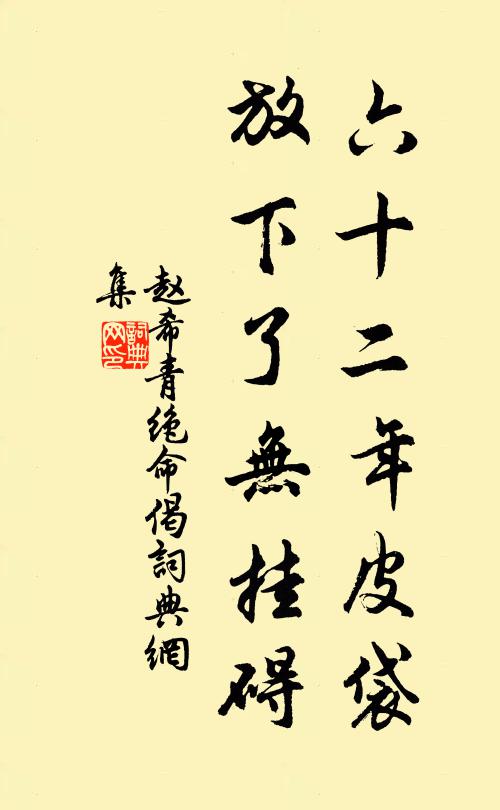 六十二年皮袋
放下了無挂碍
赵希青绝命偈詞典網
集
詞典
网印